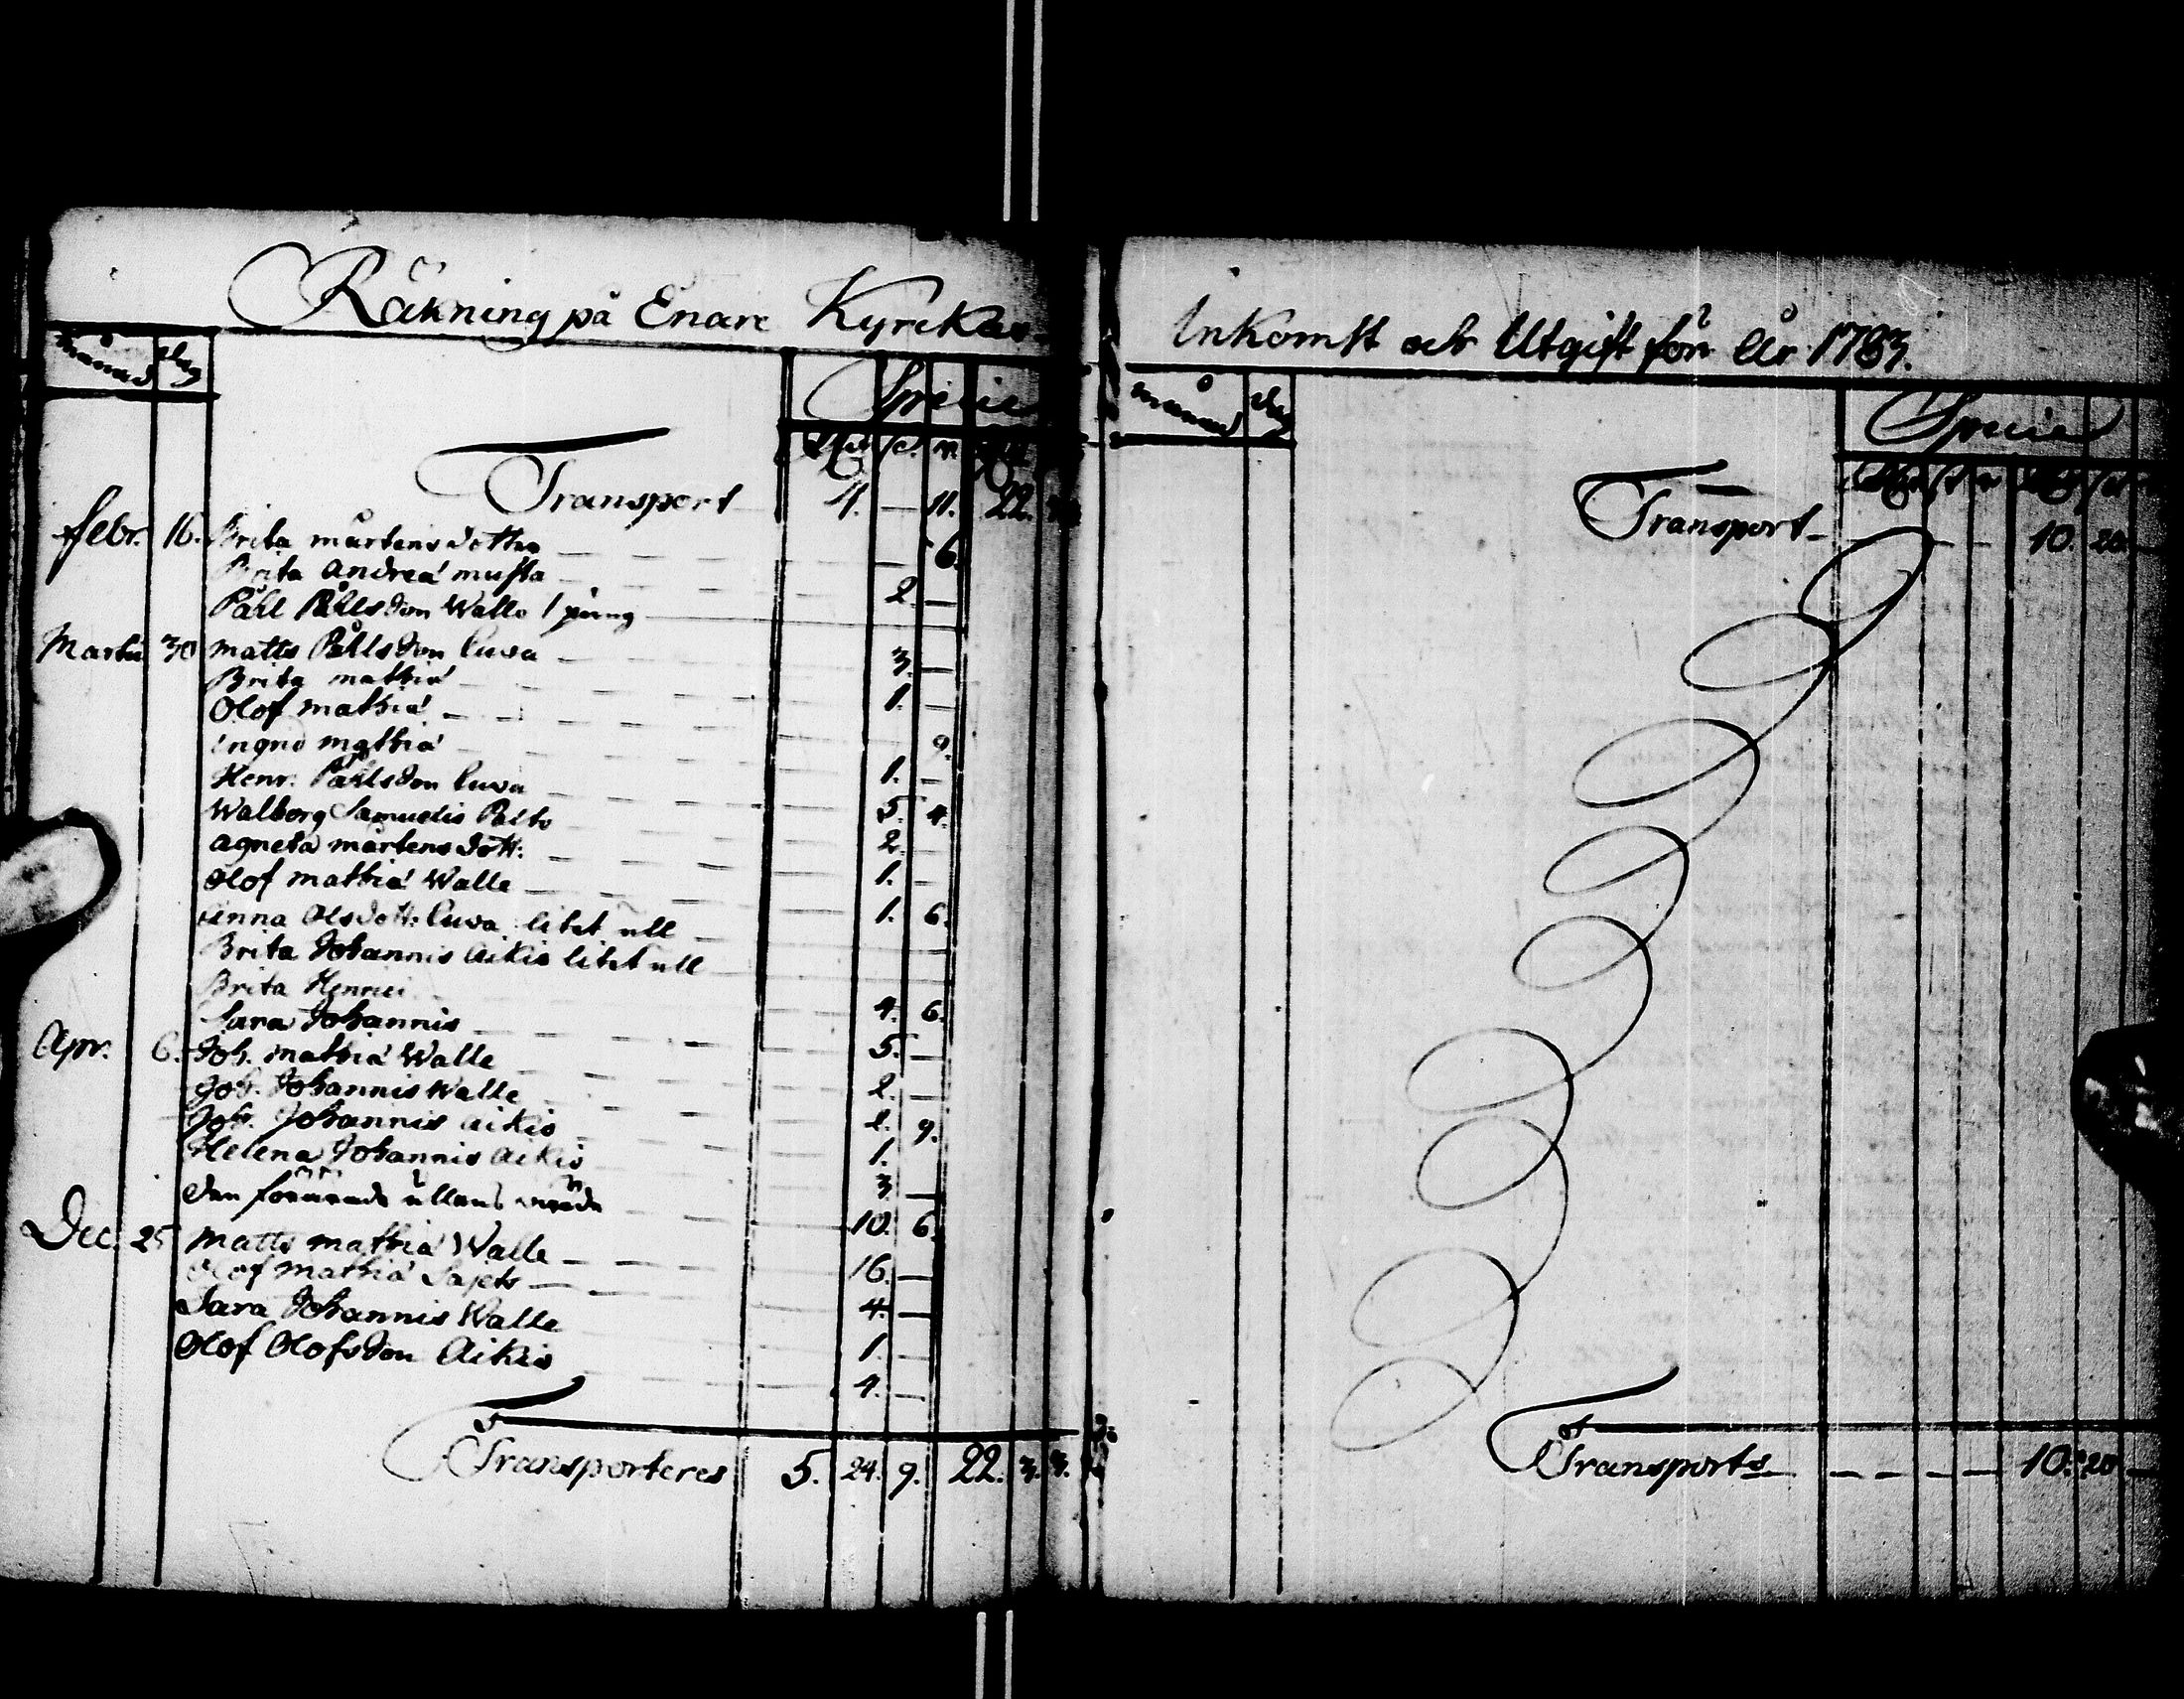 Räkning på Enare Kyrckas
månad dag
Specie
Transport 4. — 11. 22.
Febr. 16. Brita mårtensdotter — 6.
Brita Andreæ musta 2. —
Påhl Påhlsson Walle 1 pung
Martii 30 matts Påhlsson Cuva 3. —
Brita mathiæ 1. —
Olof mathiæ
Ingrid mathiæ 9.
Henr. Påhlsson Cuva 1. —
Walborg Samuelis Palto 5. 4.
Agneta mårtensdott: 2. —
Olof mathiæ Walle 1. —
Anna Olsdott: Cuva litet ull 1. 6.
Brita Johannis Aikio litet ull
Brita Henrici
Sara Johannis 4. 6.
Apr. 6. Joh. mathiæ Walle 5. —
Joh. Johannis Walle 2. —
Joh. Johannis Aikio 2. 9.
Helena Johannis Aikio 1.
Den förärade ullens wärde 3. —
Dec. 25 Matts mathiæ Walle 10. 6.
Olof Mathiæ Sajets 16. —
Sara Johannis Walle 4. —
Olof Olofsson Aikio 1. —
4. —
Transporteres 5. 24. 9. 22. 3. 3.
Inkomst och Utgift för År 1783.
månad dag
Specie
Transport — 10. 20. —
Transports — 10. 20 —